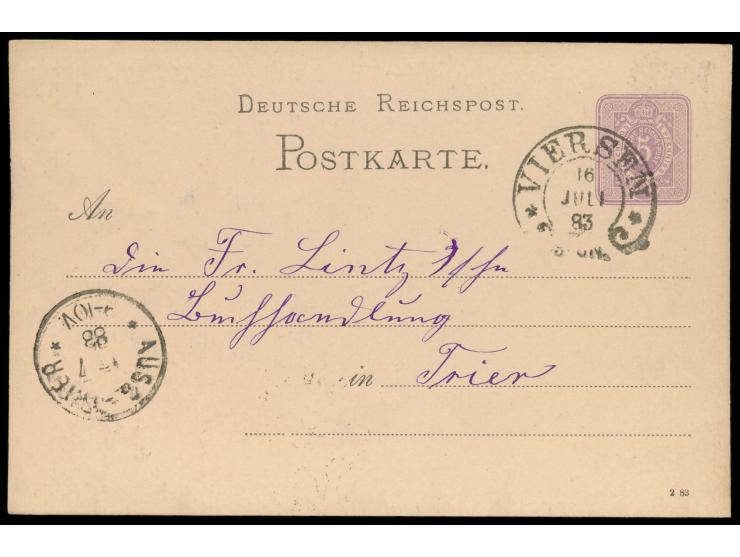 DEUTSCHE REICHSPOST.
POSTKARTE.
VIERSEN
16
JULI
83
An
Die Fr. Lintz'sche
Buchhandlung
in Trier
AUSG
TRIER
7
9-10V
2 83